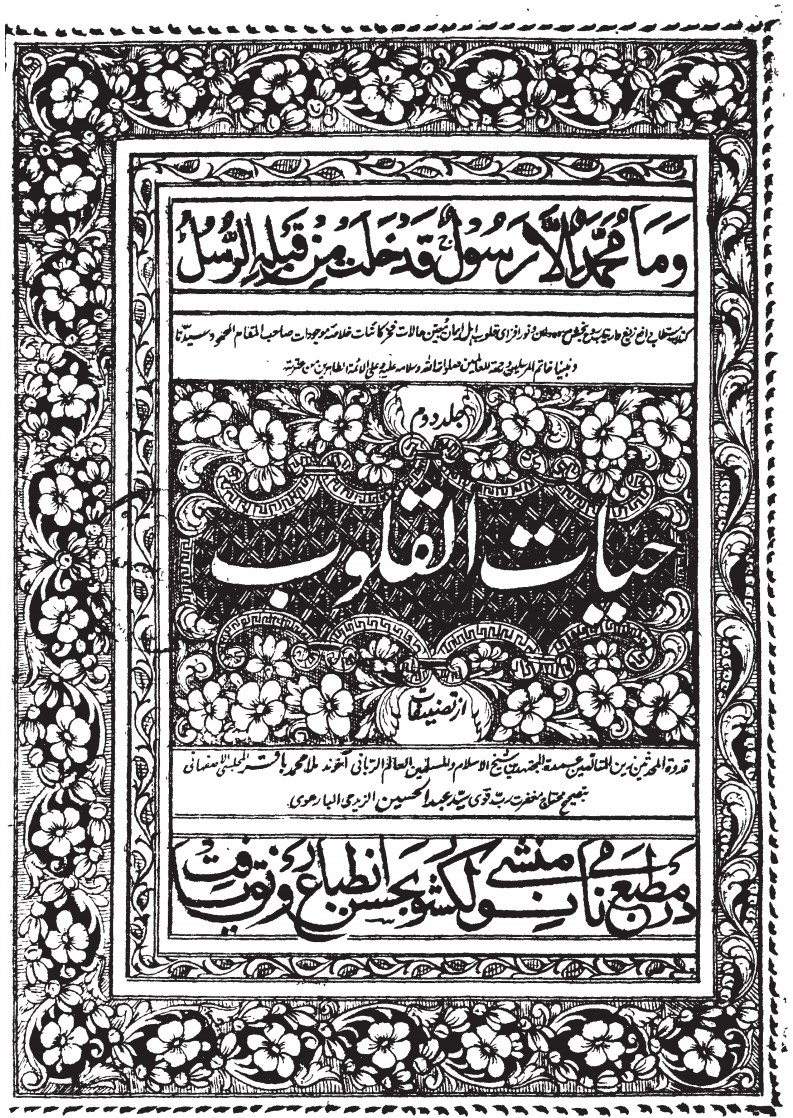 وَمَا مُحَمَّدٌ اِلَّا رَسُولٌ قَدْ خَلَتْ مِنْ قَبْلِهِ الرُّسُلُ
ونور افزای قلوب اہل ایمان مبین حالات فخر کائنات خلاصہ موجودات صاحب المقام المحمود سیدنا
ونبینا خاتم المرسلین رحمة للعالمین صلوات الله وسلامه علیه وعلی الائمة الطاهرین من عترته
جلد دوم
حیات القلوب
از تصنیفات
قدوة المحدثین زین المتألهین عمدة المجتهدین شیخ الاسلام والمسلمین العالم الربانی آخوند ملا محمد باقر المجلسی الاصفهانی
بتصحیح محتاج مغفرت رب قوی سید عبد الحسین
در مطبع نامی منشی نولکشور بحسن انطباع رونق یافت